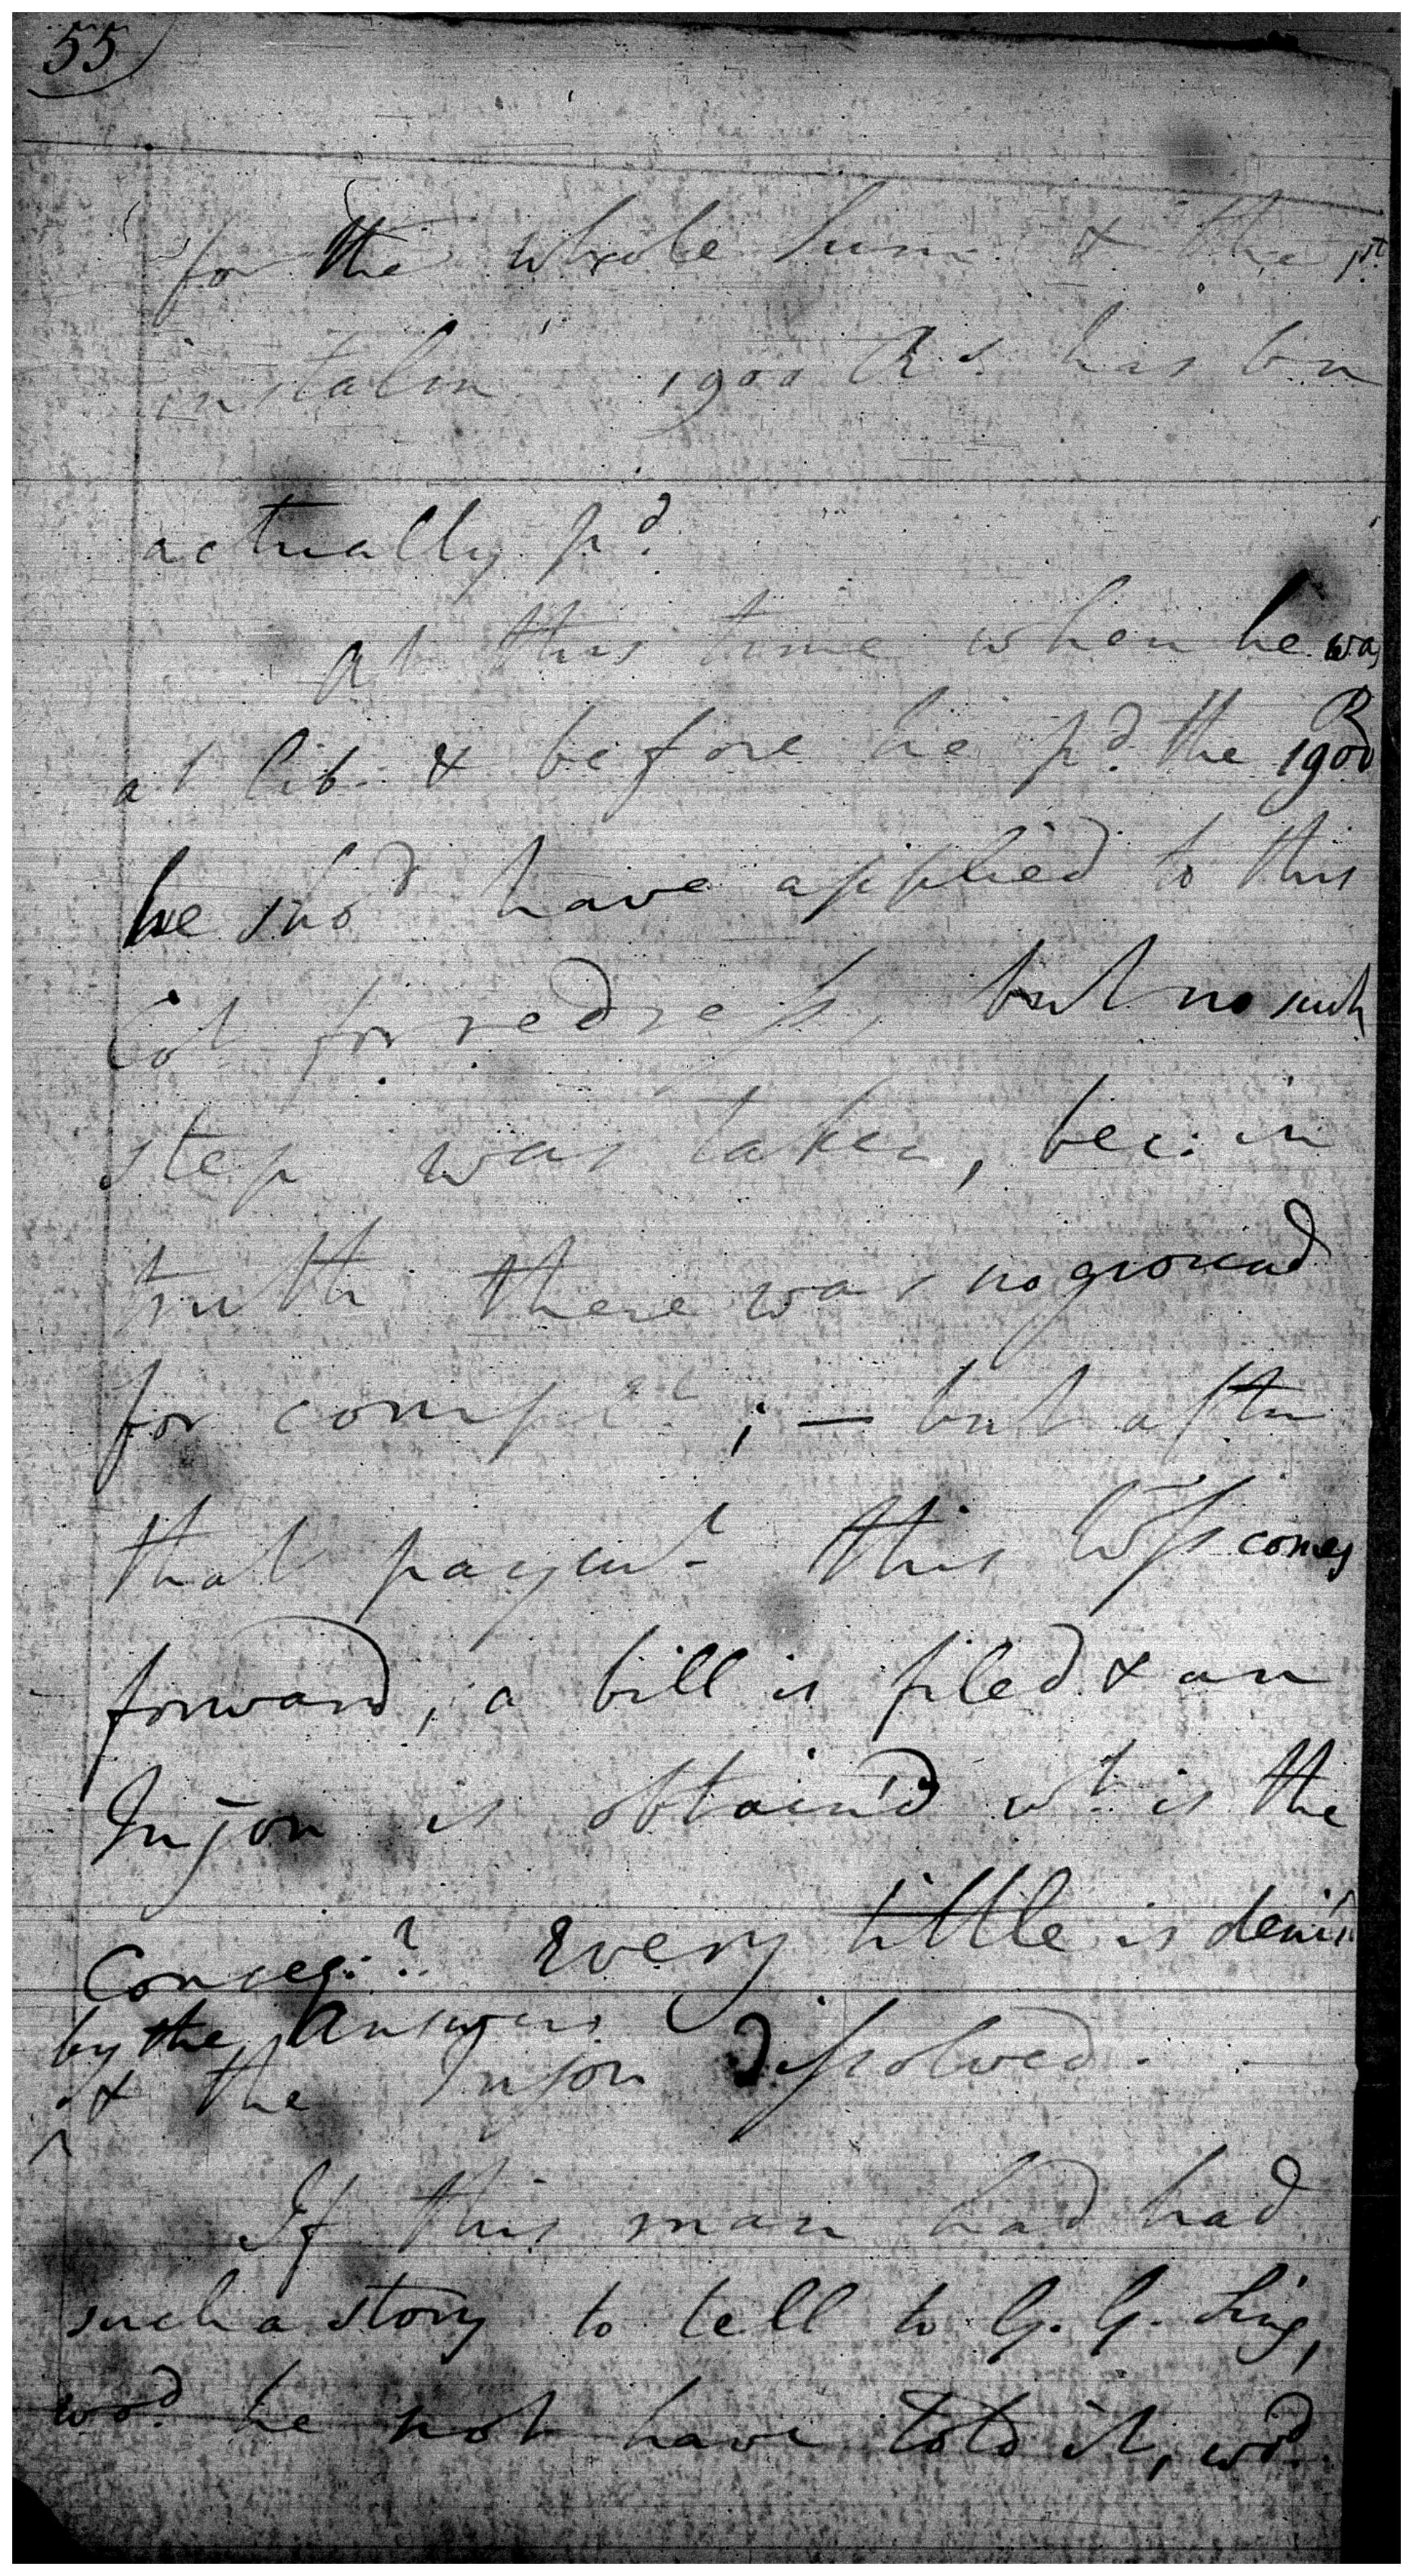 55
for the whole sum & the 1st
instalm 1900 Rs. has bn
actually pd.
At this time when he was
at lib. & before he pd. the 1900 R
he shod have applied to this
Cot. for redress, but no such
step was taken, bec: in
truth there was no ground
for compt ; — but after
that paymt. this comes
forward, a bill is filed & an
Injon is obtain'd wt. is the
Conseq:? Every tittle is deni'd
by the Answers
& the Injon Dissolved.
If this man had had
such a story to tell to G. G. Sing,
wod. he not have told it, wod.